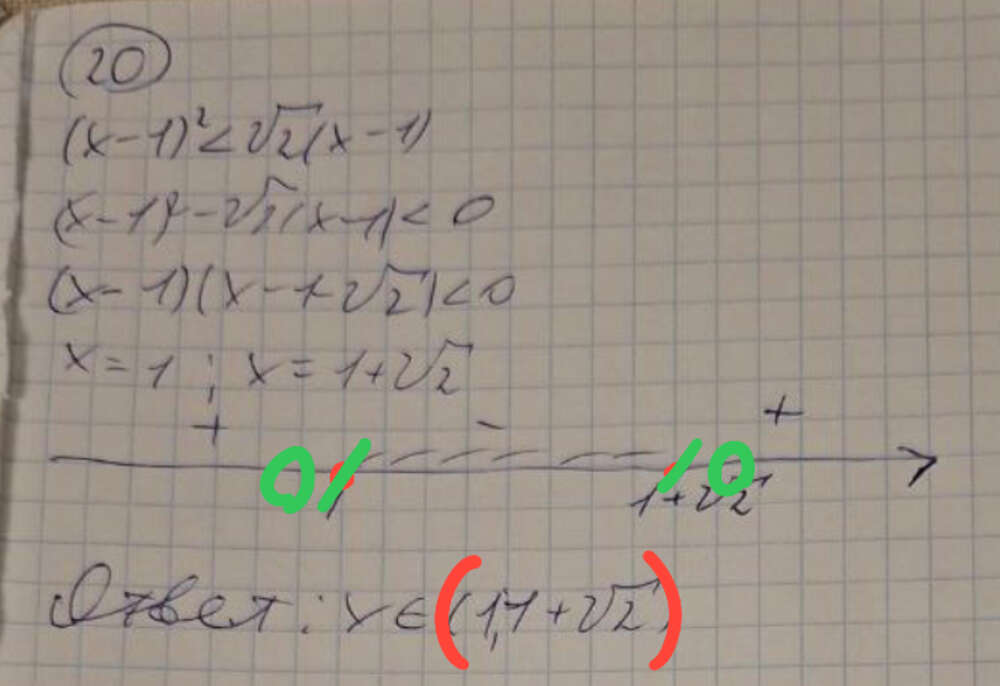 20
(x-1)²<√2(x-1)
(x-1)²-√2(x-1)<0
(x-1)(x-1-√2)<0
x=1 ; x=1+√2
+ - +
0 0
1 1+√2
Ответ: x∈(1;1+√2)